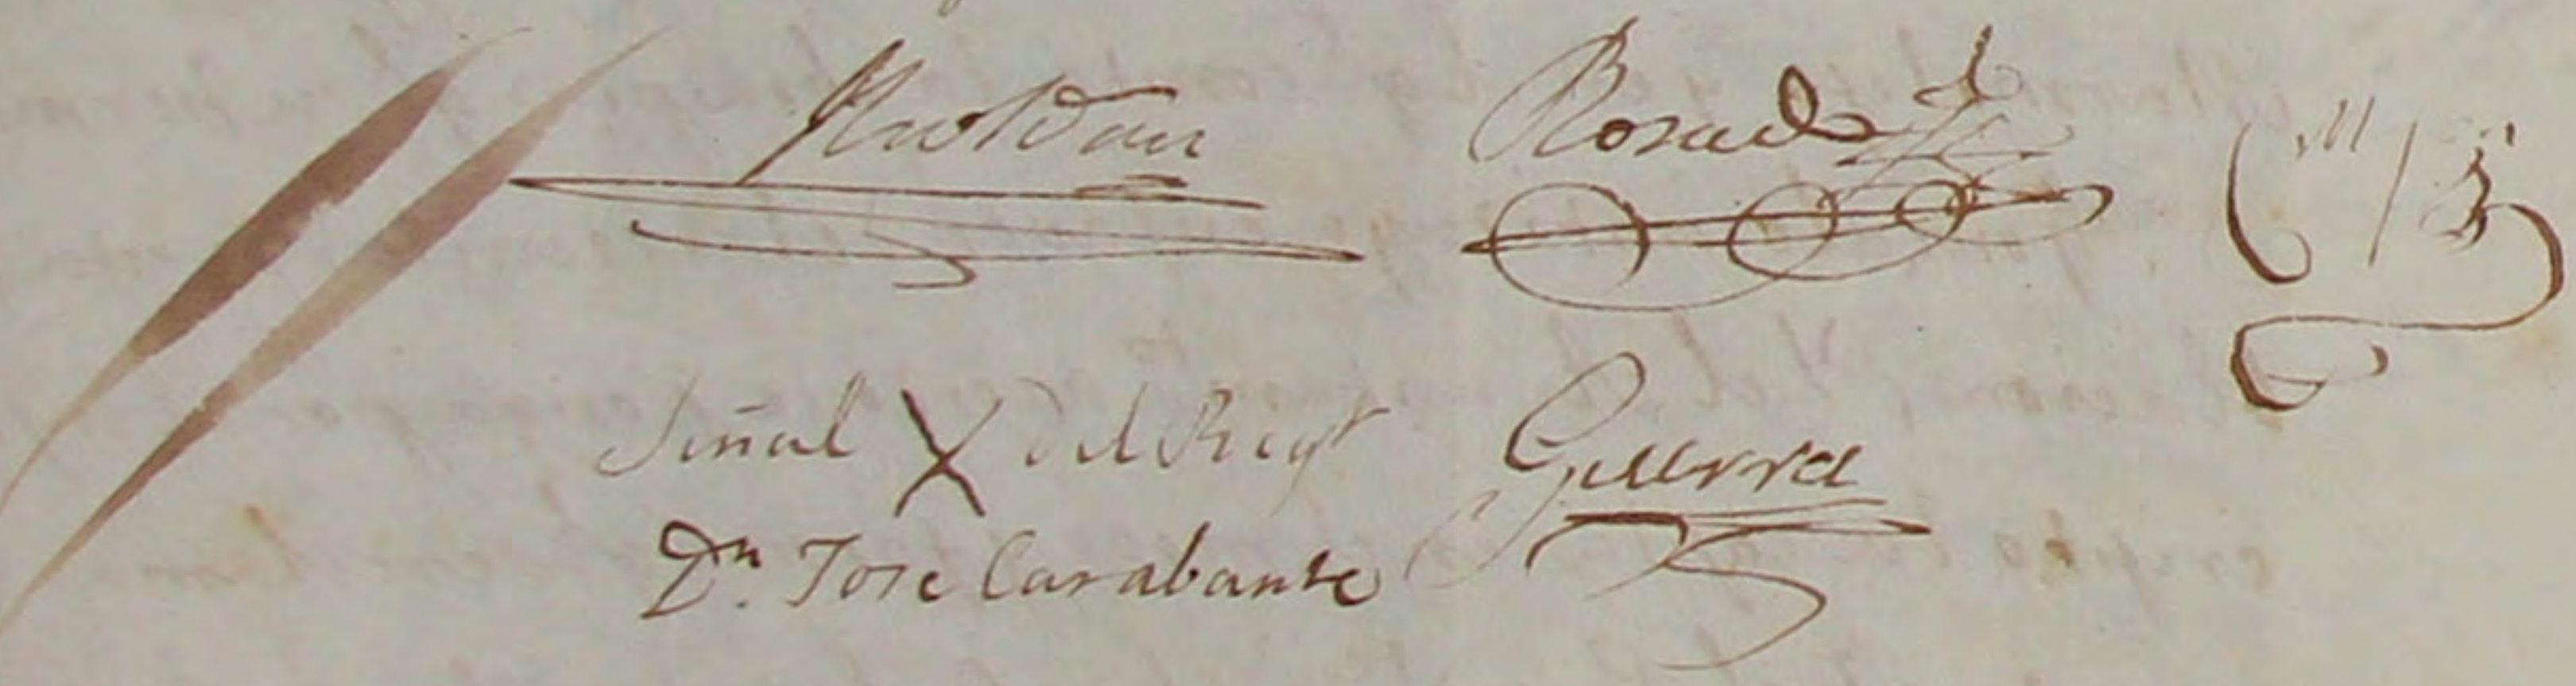 Roldan Rosado
Señal X del Regr Guerra
Dn. Jose Carabante